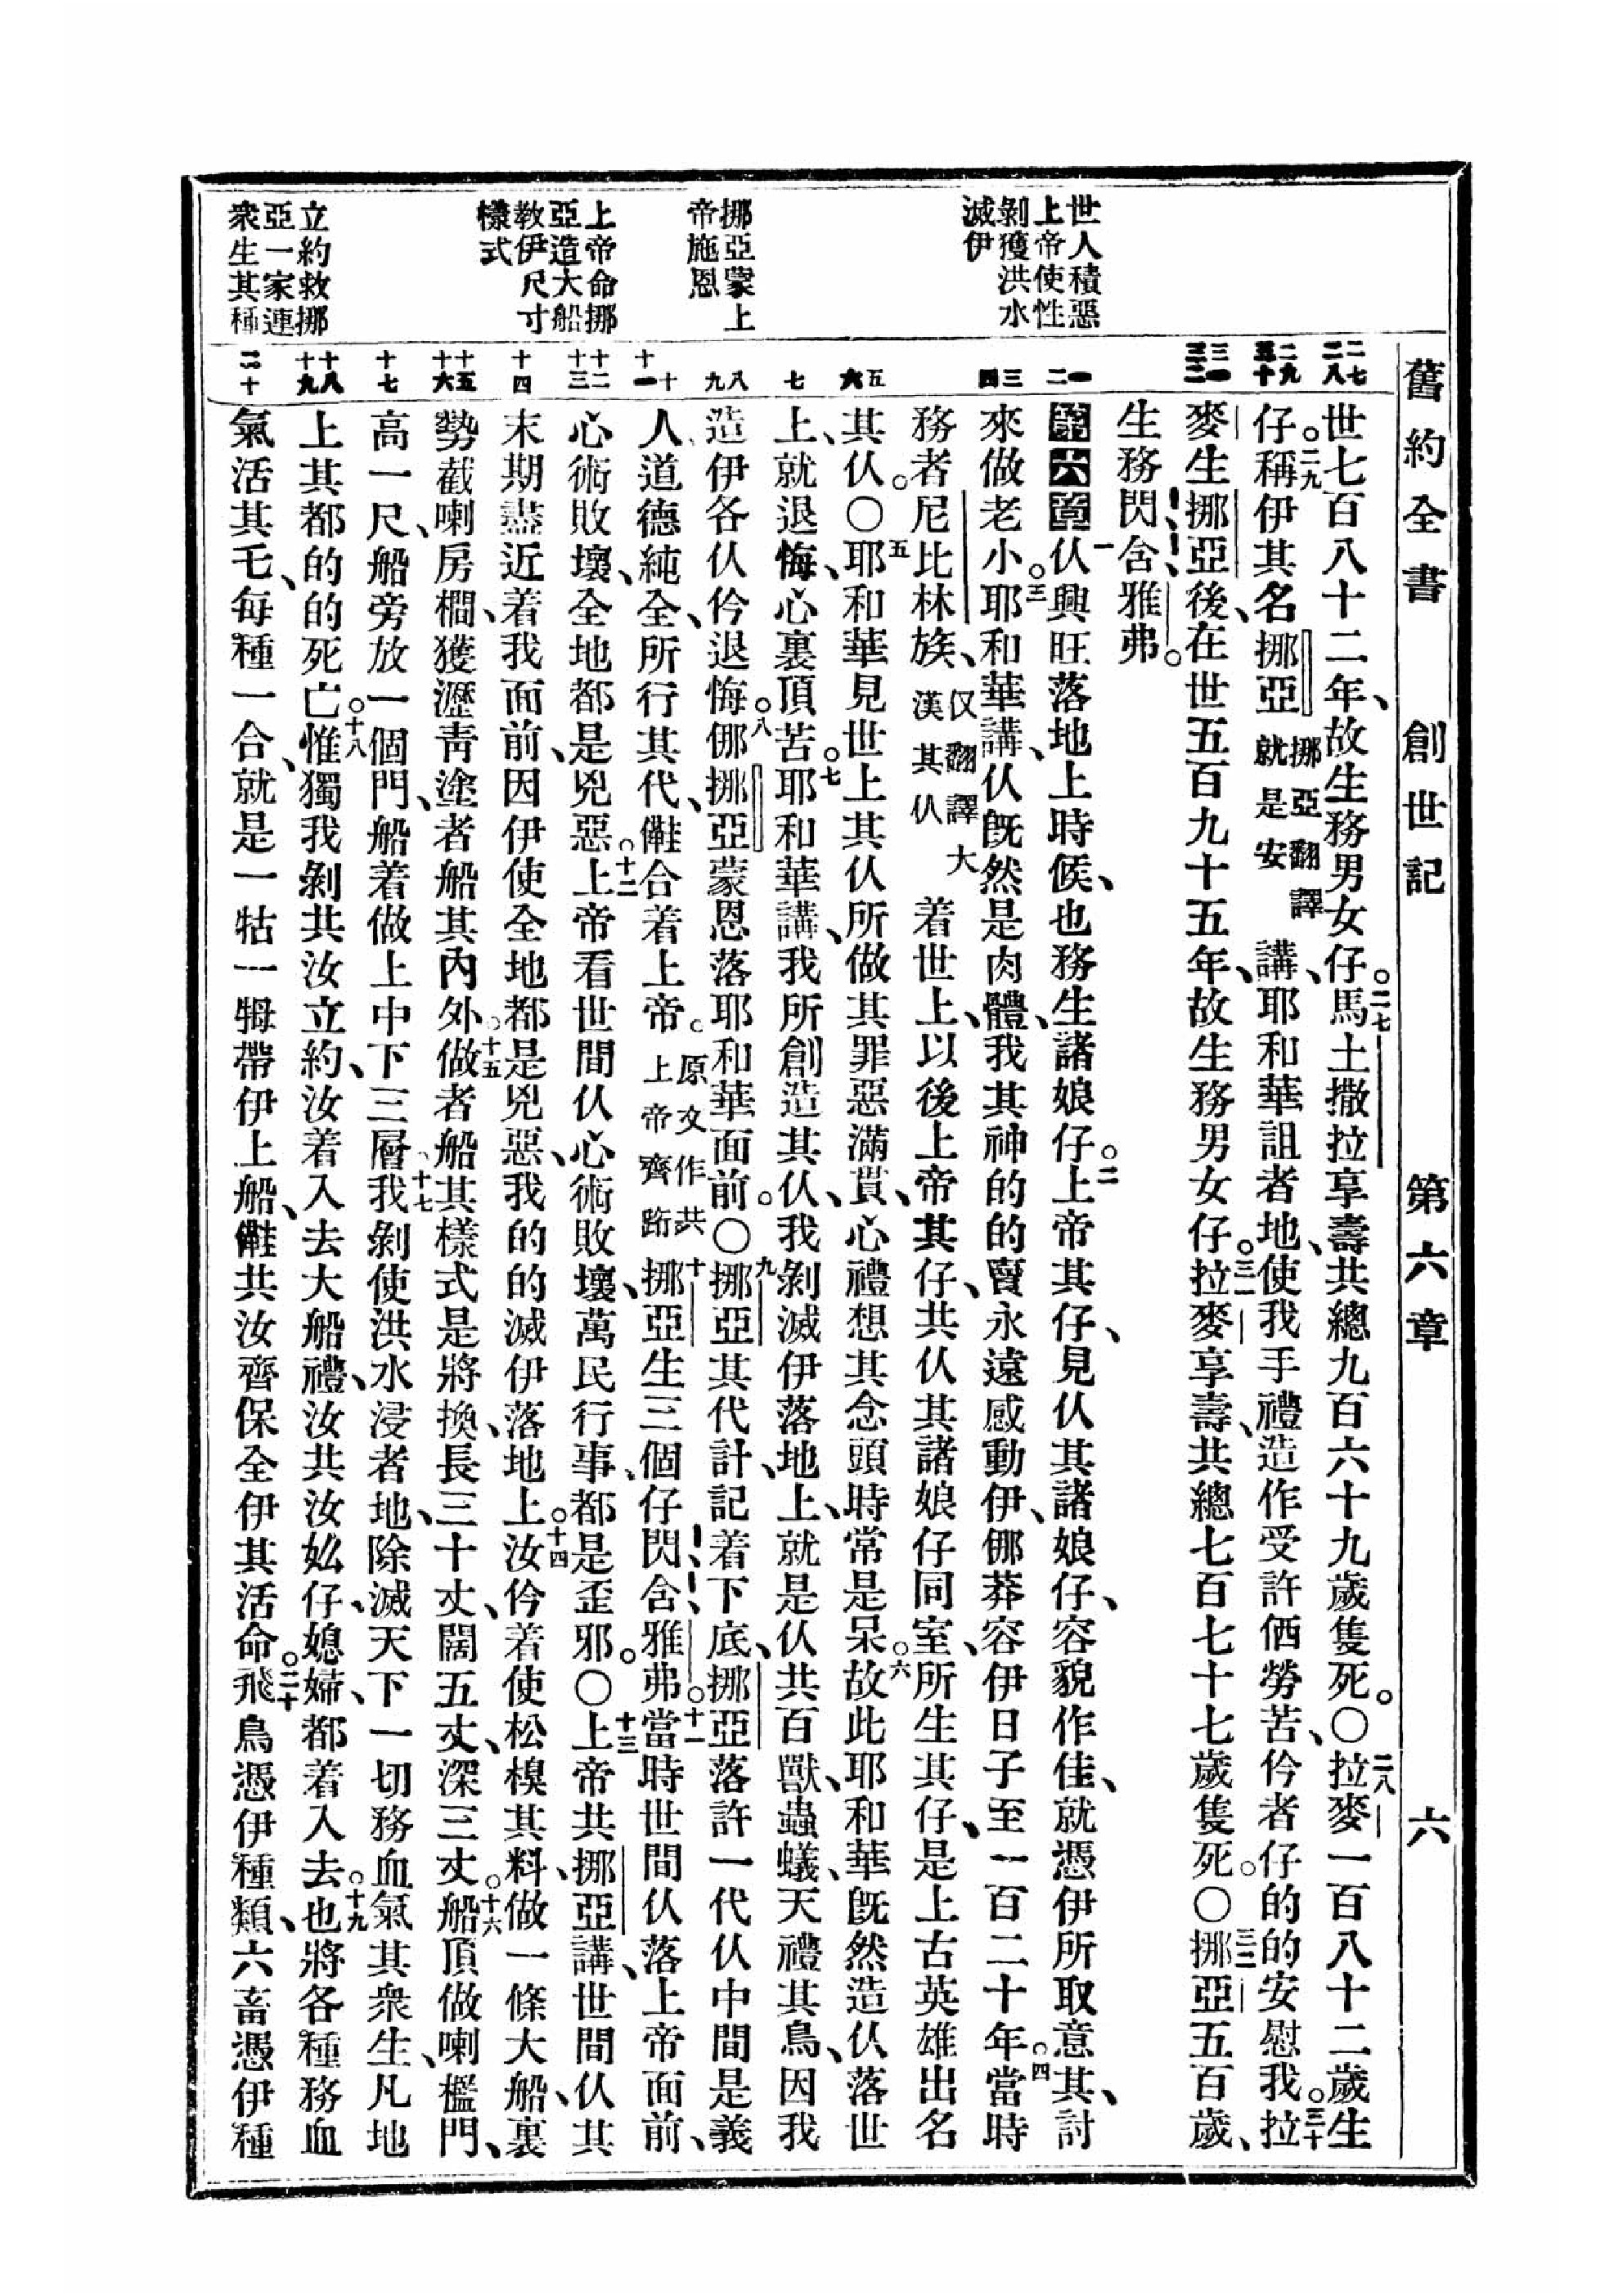 舊約全書 創世記 第六章 六
世人積惡
上帝使性
剝獲洪水
滅伊
挪亞蒙上
帝施恩
上帝命挪
亞造大船
教伊尺寸
樣式
立約救挪
亞一家連
衆生其種
二七 二八
二九 三十
三一 三二
一 二
三 四
五 六
七
八 九
十 十一
十二 十三
十四
十五 十六
十七
十八 十九
二十
世七百八十二年、故生務男女仔。二七馬土撒拉享壽共總九百六十九歲隻死。〇二八拉麥一百八十二歲生
仔。二九稱伊其名挪亞挪亞翻譯就是安慰講、耶和華詛者地、使我手禮造作受許価勞苦、仱者仔的的安慰我。三十拉
麥生挪亞後、在世五百九十五年、故生務男女仔。三一拉麥享壽、共總七百七十七歲隻死。〇三二挪亞五百歲、
生務閃、含、雅弗。
第六章 一仈興旺落地上時候、也務生諸娘仔。二上帝其仔、見仈其諸娘仔、容貌作佳、就憑伊所取意其、討
來做老小。三耶和華講、仈旣然是肉體、我其神的的賣永遠感動伊、㑚莽容伊日子至一百二十年。四當時
務者。尼比林族、仅翻譯大漢其仈着世上、以後上帝其仔、共仈其諸娘仔同室、所生其仔、是上古英雄出名
其仈。〇五耶和華見世上其仈所做其罪惡滿貫、心禮想其念頭時常是呆。六故此耶和華旣然造仈落世
上、就退悔、心裏頂苦。七耶和華講、我所創造其仈、我剝滅伊落地上、就是仈共百獸、蟲蟻、天禮其鳥、因我
造伊各仈仱退悔。八㑚挪亞蒙恩落耶和華面前。〇九挪亞其代計、記着下底、挪亞落許一代仈中間是義
人、道德純全、所行其代、㒑合着上帝。原文作共上帝齊跲十挪亞生三個仔閃、含、雅弗。十一當時世間仈落上帝面前、
心術敗壞、全地都是兇惡。十二上帝看世間仈心術敗壞、萬民行事、都是歪邪。〇十三上帝共挪亞講、世間仈其
末期盡近着我面前、因伊使全地都是兇惡、我的的滅伊落地上。十四汝仱着使松模其料、做一條大船、裏
勢截喇房櫚、獲瀝靑塗者船其內外。十五做者船其樣式是將換、長三十丈、闊五丈、深三丈。十六船頂做喇檻門、
高一尺、船旁放一個門、船着做上中下三層、十七我剝使洪水浸者地、除滅天下一切務血氣其衆生、凡地
上其都的的死亡。十八惟獨我剝共汝立約、汝着入去大船禮、汝共汝妐仔、媳婦、都着入去。十九也將各種務血
氣活其乇、每種一合、就是一牯一𤙩帶伊上船、㒑共汝齊保全伊其活命。二十飛鳥憑伊種類、六畜憑伊種